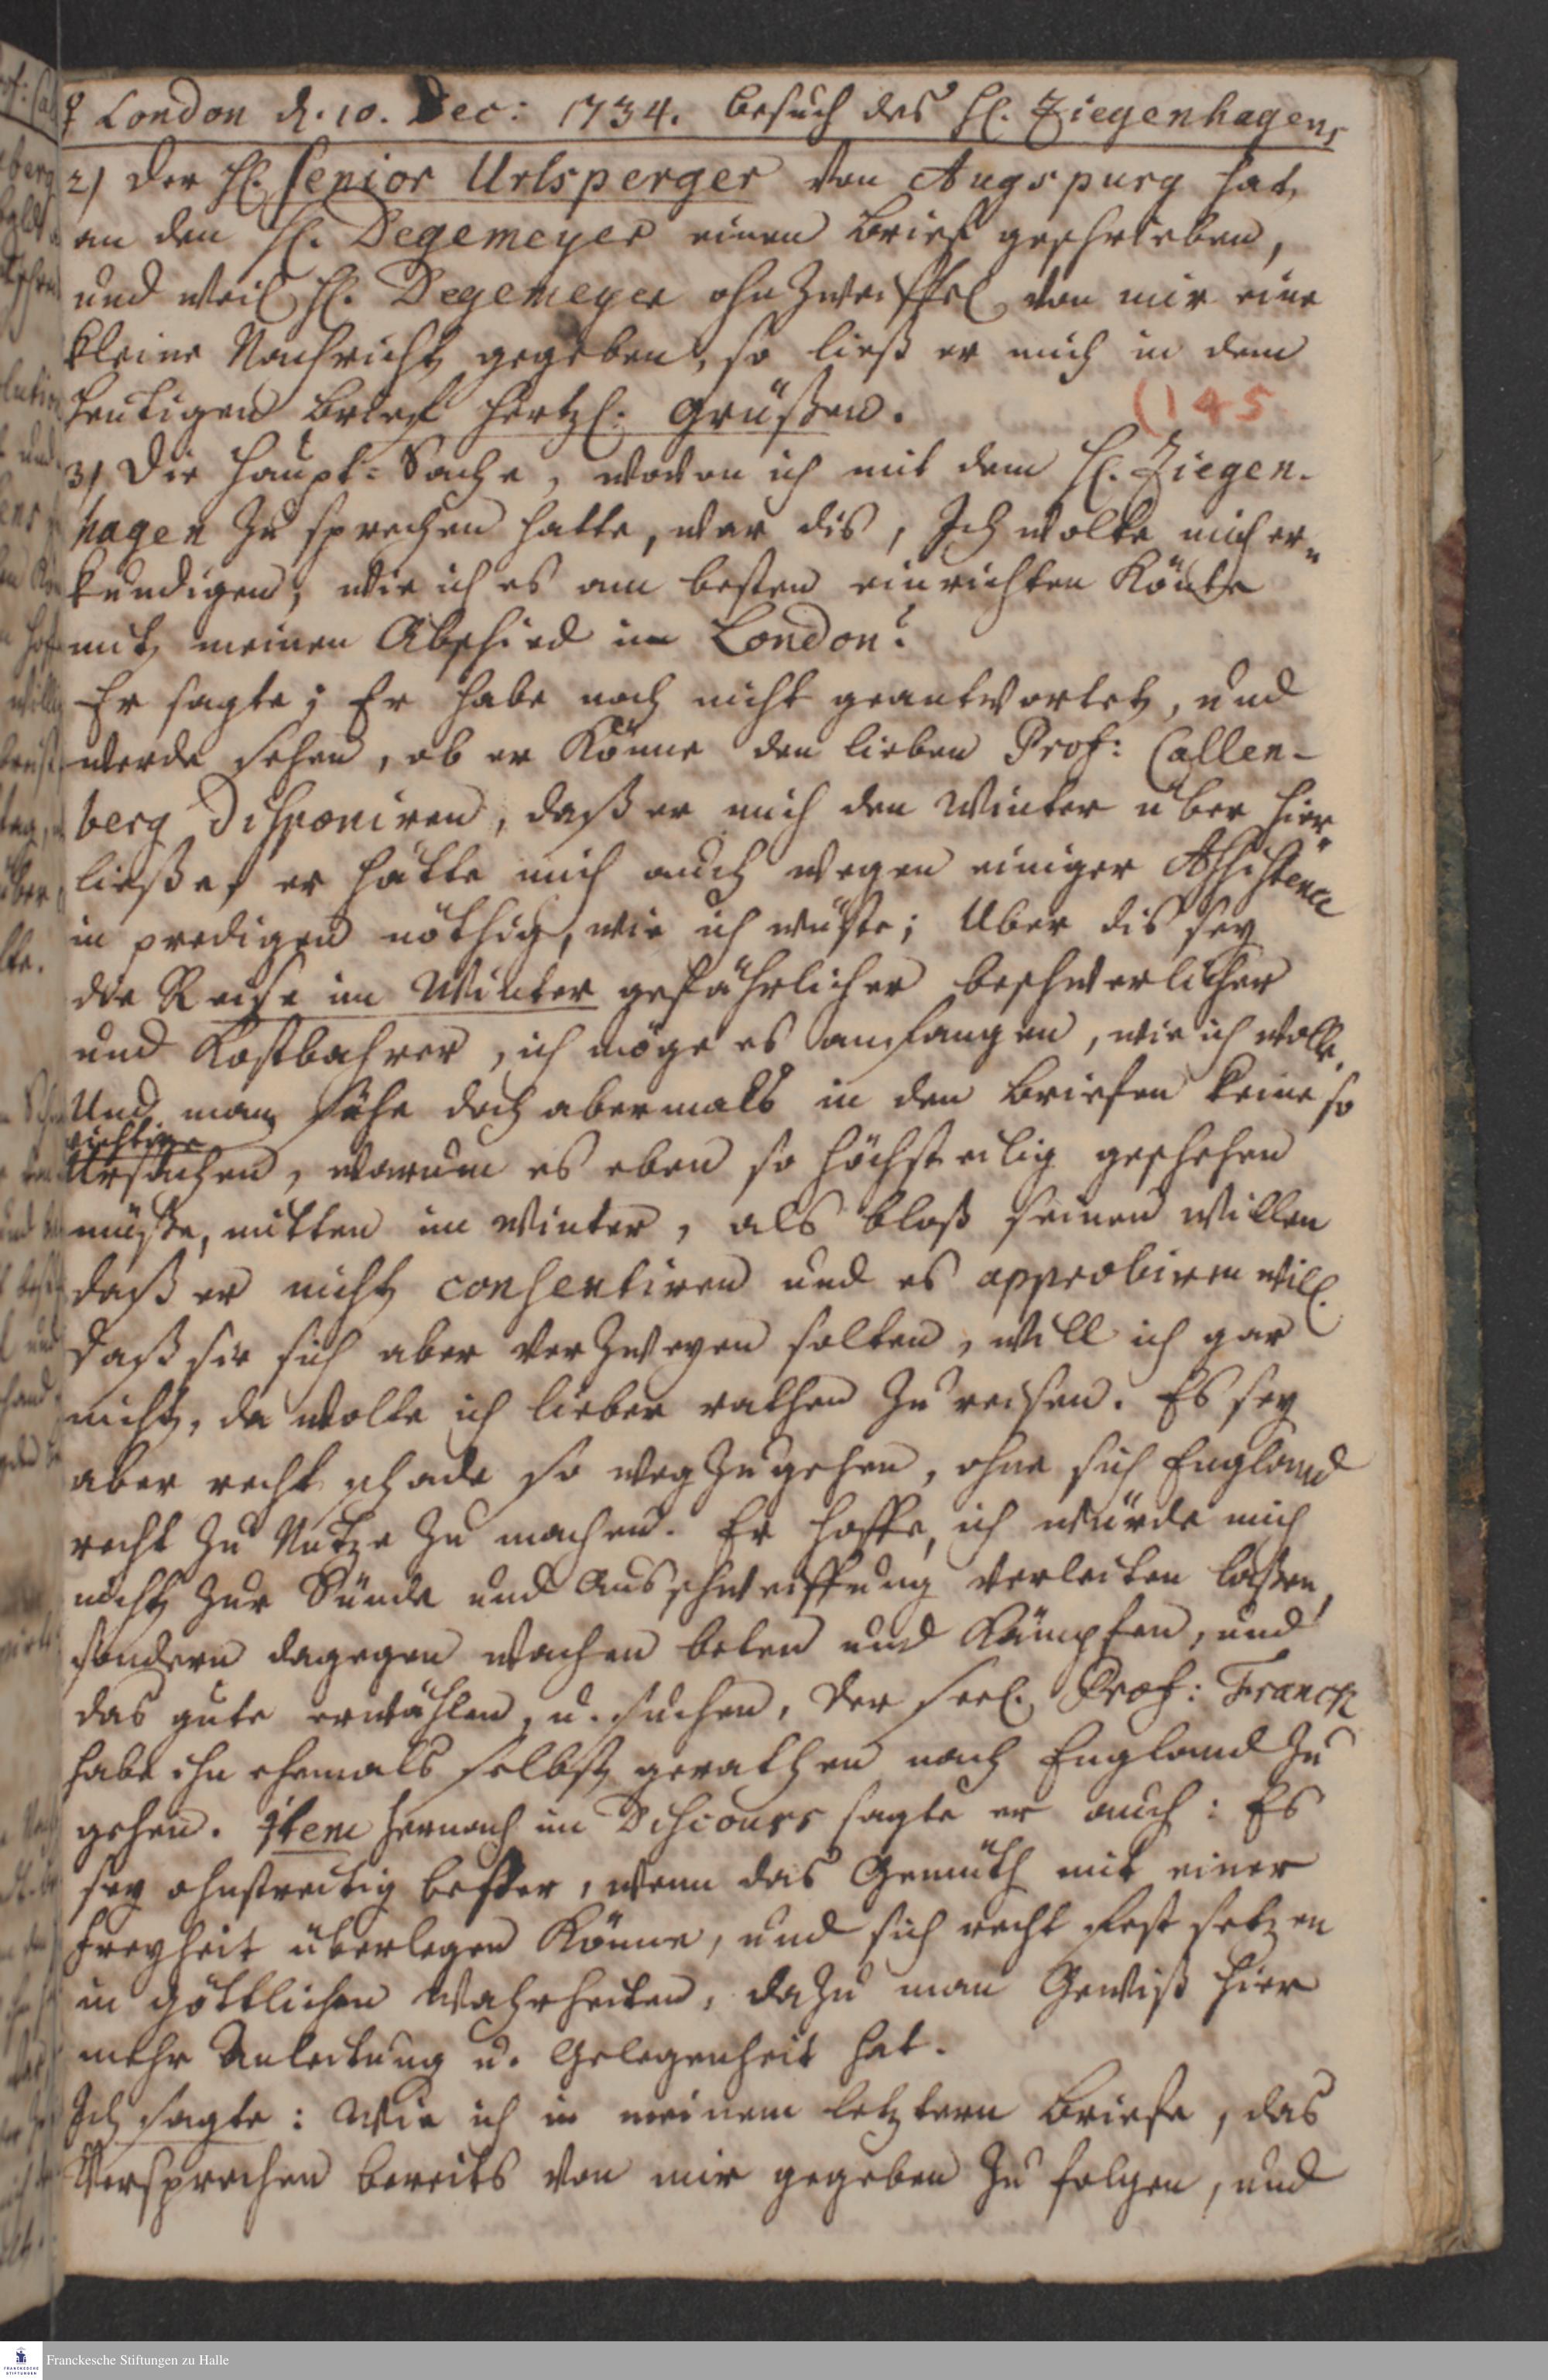 ♀ London d. 10. Dec: 1734. Besuch des H. Ziegenhagens
2) Der H. Senior Urlsperger von Augspurg hat
an den H. Degemeyer einen Brief geschrieben,
und weil H. Degemeyer ohn Zweiffel von mir eine
kleine Nachricht gegeben, so ließ er mich in dem
heutigen Brief hertzl. grüßen.
(145
3) Die Haupt-Sache, wovon ich mit dem H. Ziegen-
hagen zu sprechen hatte, war dis, Ich wolte mich er-
kundigen, wie ich es am besten einrichten Könte
mit meinen Abschied in London?
Er sagte; Er habe noch nicht geantwortet, und
werde sehen, ob er Könne den lieben Prof: Callen-
berg disponiren, daß er mich den Winter über hier
ließe, er hätte mich auch wegen einiger Assistence
in predigen nöthig, wie ich wüste; Uber dis sey
die Reise im Winter gefährlicher beschwerlicher
und Kostbahrer, ich möge es anfangen, wie ich wolle.
Und man sähe doch abermals in den Briefen keine so
wichtige
Ursachen, warum es eben so höchst eilig geschehen
müste, mitten im Winter, als bloß seinen Willen
daß er nicht consentiren und es approbiren will.
Daß sie sich aber verzweyen solten, will ich gar
nicht, da wolte ich lieber rathen zu reisen. Es sey
aber recht schade so weg zu gehen, ohne sich England
recht zu Nutze zu machen. Er hoffe, ich würde mich
nicht zur Sünde und Ausschweiffung verleiten laßen,
sondern dagegen wachen beten und Kämpfen, und
das gute erwählen, u. suchen. Der seel. Prof: Franck
habe ihn ehemals selbst gerathen nach England zu
gehen. Item hernach im Discours sagte er auch: Es
sey ohnstreitig besser, wenn das Gemüth mit einer
Freyheit überlegen Könne, und sich recht fest setzen
in göttlichen Wahrheiten, dazu man Gewiß hier
mehr Anleitung u. Gelegenheit hat.
Ich sagte: Wie ich in meinem letztern Briefe, das
Versprechen bereits von mir gegeben zu folgen, und
Franckesche Stiftungen zu Halle